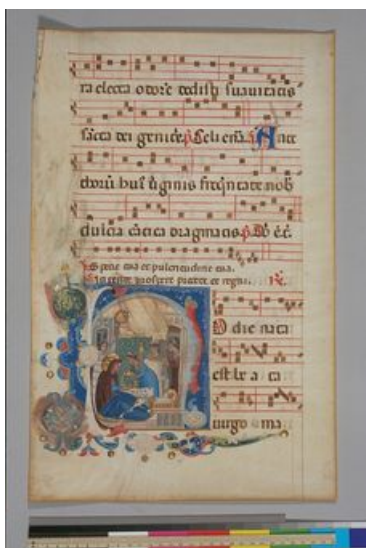 ra electa odore dedisti suavitatis
sācta dei genitr̄. p̄s. Celi enar̄. a. Ante
thorū huī v̄ginis freq̄ntate nob̄
dulcia cātica dragmatis. p̄s. Dn̄i ē.
Specie tua et pulcritudine tua.
Intende prospere procede et regna.
odie nata
est be a ta
virgo ma